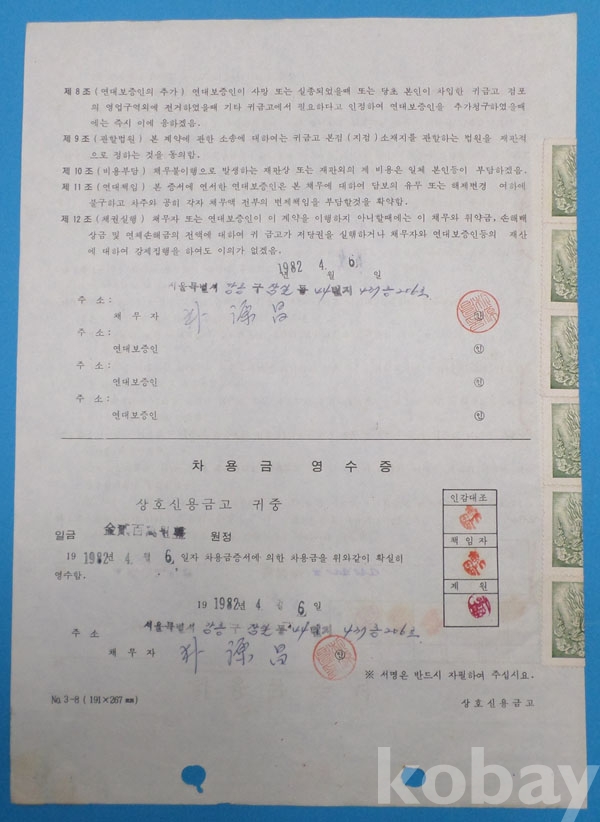 제 8 조 (연대보증인의 추가) 연대보증인이 사망 또는 실종되었을때 또는 당초 본인이 사입한 귀금고 점포
의 영업구역외에 전거하였을때 기타 귀금고에서 필요하다고 인정하여 연대보증인을 추가청구하였을때
에는 즉시 이에 응하겠음.
제 9 조 (관할법원) 본 계약에 관한 소송에 대하여는 귀금고 본점 (지점) 소재지를 관할하는 법원을 재판적
으로 정하는 것을 동의함.
제 10 조 (비용부담) 채무불이행으로 발생하는 재판상 또는 재판외의 제 비용은 일체 본인등이 부담하겠음.
제 11 조 (연대책임) 본 증서에 연서한 연대보증인은 본 채무에 대하여 담보의 유무 또는 해제변경 여하에
불구하고 사주와 공히 각자 채무액 전부의 변제책임을 부담할것을 확약함.
제 12 조 (채권실행) 채무자 또는 연대보증인이 이 계약을 이행하지 아니할때에는 이 채무와 위약금, 손해배
상금 및 연체손해금의 전액에 대하여 귀 금고가 저당권을 실행하거나 채무자와 연대보증인등의 재산
에 대하여 강제집행을 하여도 이의가 없겠음.
1982 년 4. 월 6. 일
서울특별시 구 동 번지
주 소 :
채 무 자 인
주 소 :
연대보증인 인
주 소 :
연대보증인 인
주 소 :
연대보증인 인
차 용 금 영 수 증
상호신용금고 귀중
인감대조
일금 원정
책 임 자
19 1982년 4. 월 6. 일자 차용금증서에 의한 차용금을 위와같이 확실히
영수함.
계 원
19 1982년 4 6. 일
주 소 서울특별시 구 동 번지
채 무 자 인
※ 서명은 반드시 자필하여 주십시요.
No. 3-8 ( 191×267 ㎜ )
상호신용금고
kobay